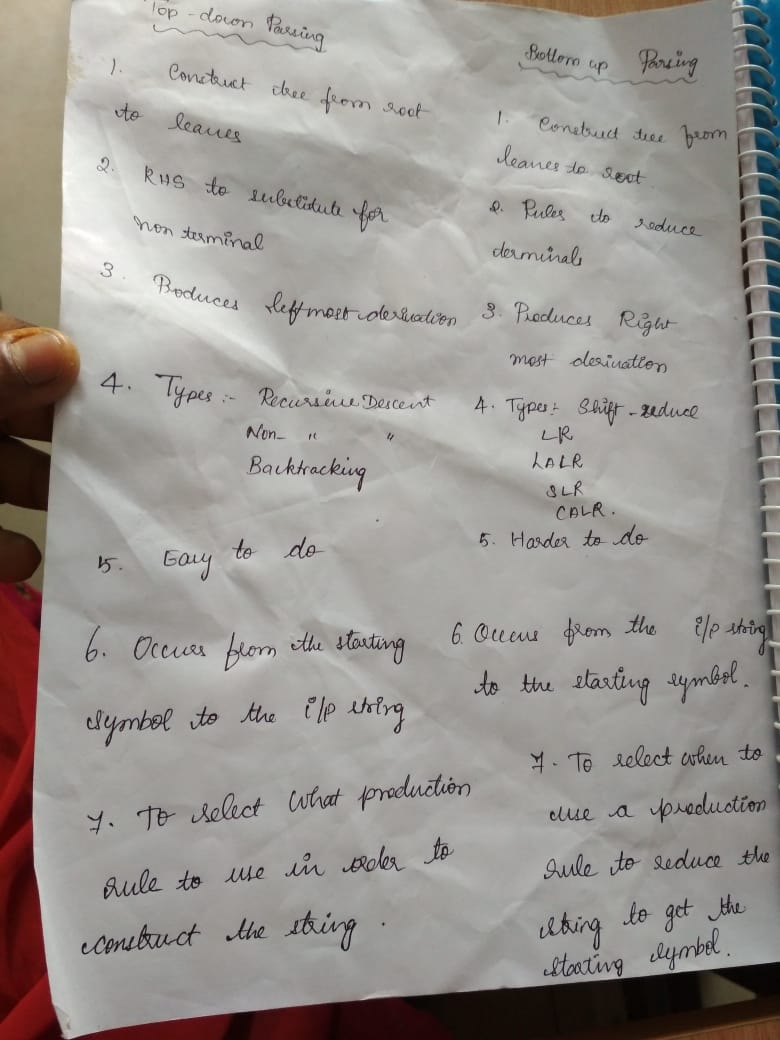 Top-down Parsing
1. Construct tree from root
to leaves
2. RHS to substitute for
non terminal
3. Produces leftmost derivation
4. Types :- Recursive Descent
Non- " "
Backtracking
5. Easy to do
6. Occurs from the starting
symbol to the i/p string
7. To select what production
rule to use in order to
construct the string.
Bottom up Parsing
1. Construct tree from
leaves to root
2. Rules to reduce
terminals
3. Produces Right
most derivation
4. Types :- Shift-reduce
LR
LALR
SLR
CALR.
5. Harder to do
6. Occurs from the i/p string
to the starting symbol.
7. To select when to
use a production
rule to reduce the
string to get the
starting symbol.